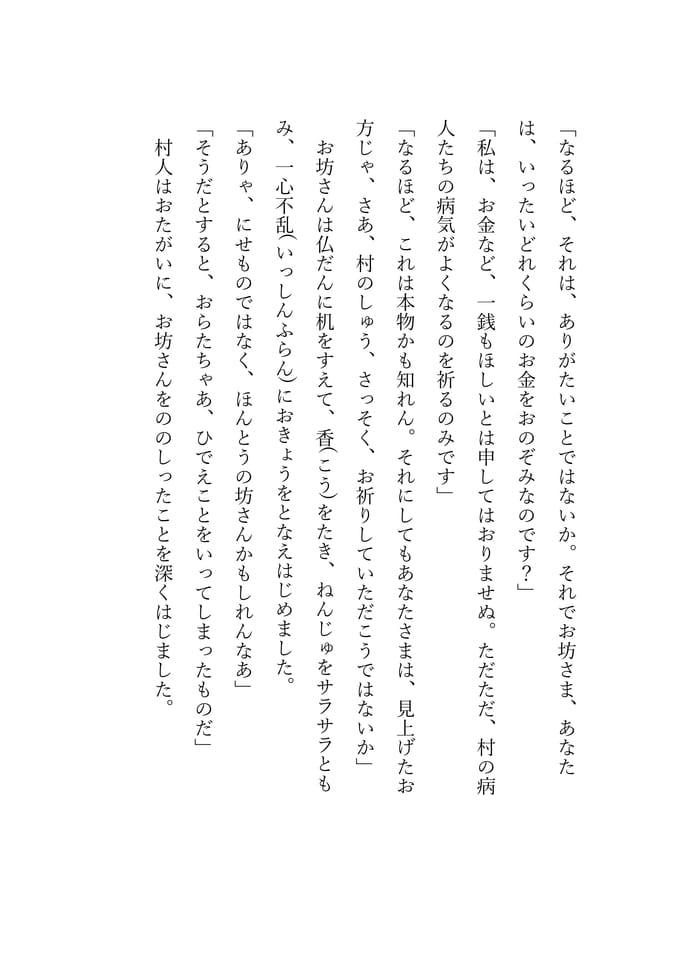 「なるほど、それは、ありがたいことではないか。それでお坊さま、あなた
は、いったいどれくらいのお金をおのぞみなのです？」
「私は、お金など、一銭もほしいとは申してはおりませぬ。ただただ、村の病
人たちの病気がよくなるのを祈るのみです」
「なるほど、これは本物かも知れん。それにしてもあなたさまは、見上げたお
方じゃ、さあ、村のしゅう、さっそく、お祈りしていただこうではないか」
　お坊さんは仏だんに机をすえて、香(こう)をたき、ねんじゅをサラサラとも
み、一心不乱(いっしんふらん)におきょうをとなえはじめました。
「ありゃ、にせものではなく、ほんとうの坊さんかもしれんなあ」
「そうだとすると、おらたちゃあ、ひでえことをいってしまったものだ」
　村人はおたがいに、お坊さんをののしったことを深くはじました。